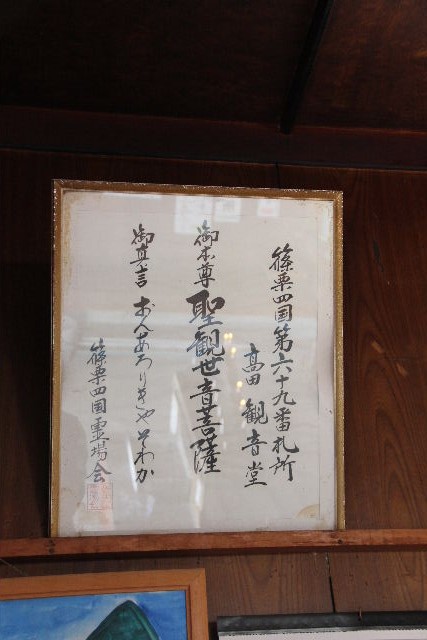 篠栗四国第六十九番札所
高田 観音堂
御本尊 聖観世音菩薩
御真言 おんあろりきゃそわか
篠栗四国霊場会